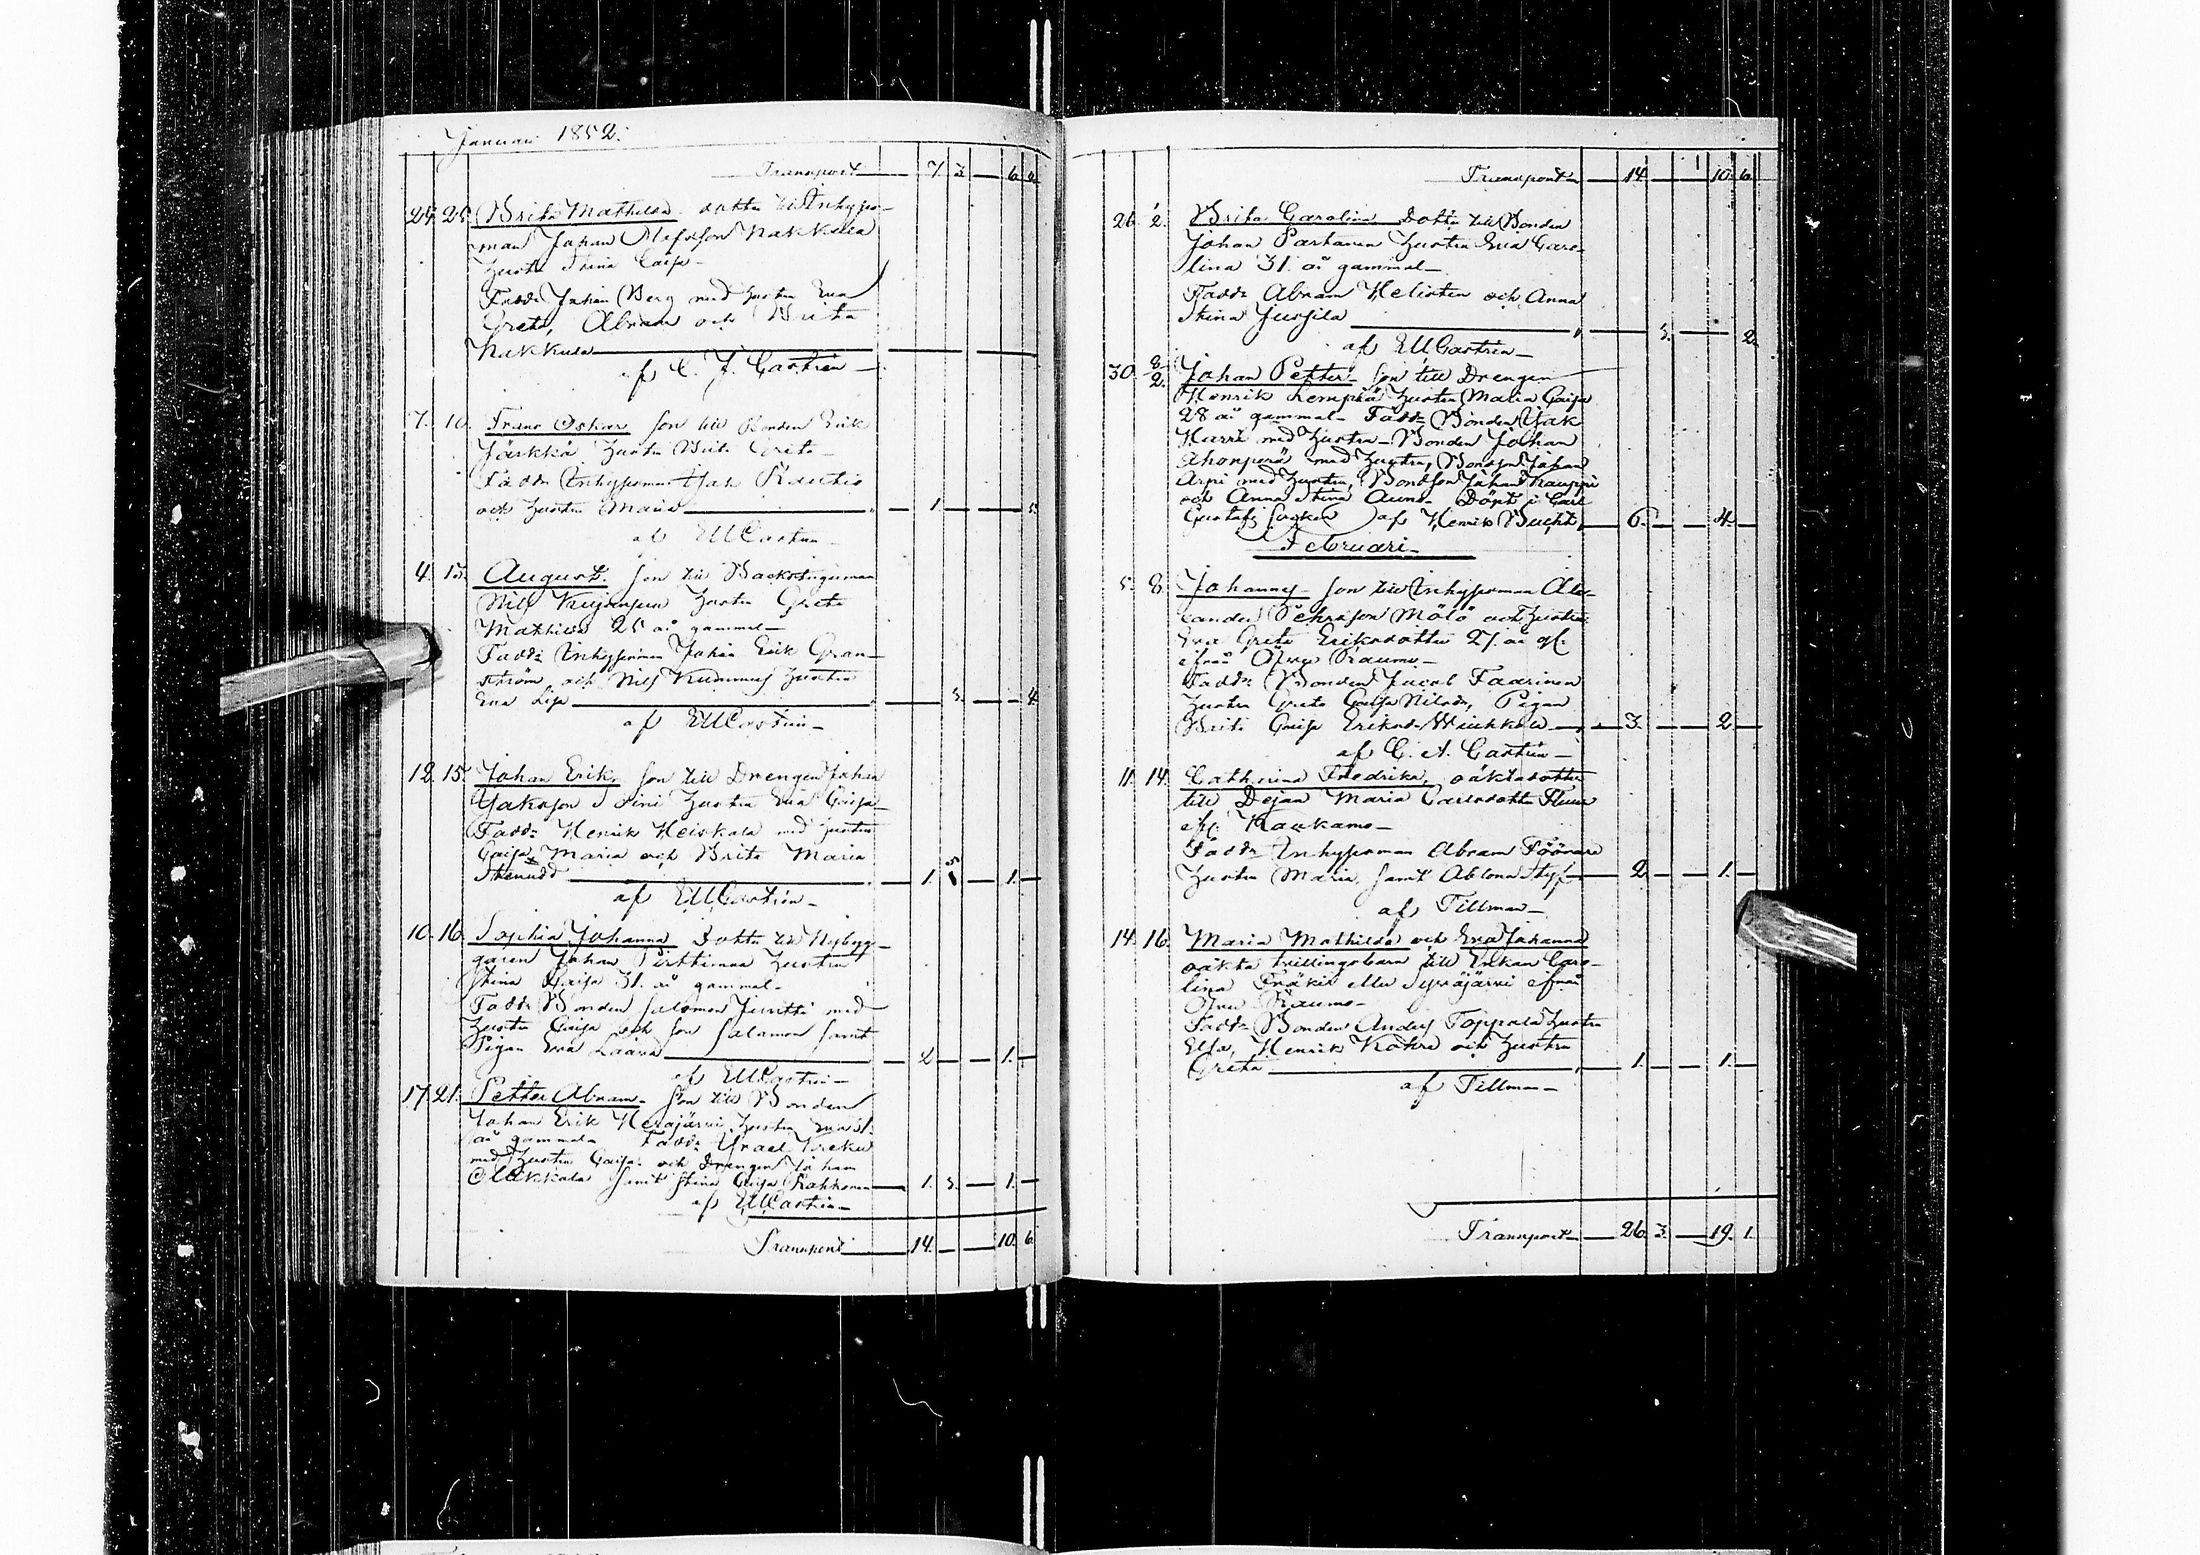 Januari 1852.
Transport 7. 3. 6.
24. 25. Brita Mathilda dotter till Inhyses-
man Johan Olofsson Nakkula
hustr Stina Caisa
Fadd: Johan Berg med hustru Eva
Greta, Abram och Brita
Nakkula
af C. J. Castrén
7. 10. Frans Oskar son till Bonden Erik
Järkkä hustru Brita Greta
Fadd: Inhysesman Isak Rautio
och hustru Maria 1.
af EMCastrén
4. 15. August. son till Backstuguman
Nils hustru Greta
Mathilda 25 år gammal
Fadd: Inhysesman Johan Erik Gran-
ström och Nils Kummus hustru
Eva Lisa 3. 4.
af EMCastrén
12. 15. Johan Erik, son till Drengen Johan
Jakosson hustru Eva Caisa
Fadd: Henrik Heiskala med hustru
Caisa Maria och Brita Maria
1. 5 1.
af EMCastrén
10. 16. Sophia Johanna dotter till Nybyg-
garen Johan Pirttimaa hustru
Stina Caisa 31. år gammal
Fadd: Bonden Salomon Juntti med
hustru Caisa och son Salamon samt
Pigan Eva Laara 2 1.
af EMCastrén
17. 21. Petter Abram son till Bonden
Johan Erik Herajärvi hustru Eva 31.
år gammal Fadd: Israel Kreku
med hustru Caisa och Drengen Johan
Olakkala samt Stina Caisa Rahkonen 1. 3. 1.
af EMCastrén
Transport 14. 10. 6.
Transport 14. 10. 6.
26. 2. Brita Carolina dotter till Bonden
Johan Parhanen hustru Eva Caro-
lina 31. år gammal
Fadd: Abram Helisten och Anna
Stina Jussila 3. 2.
af EMCastrén
30. 8/2. Johan Petter son till Drengen
Henrik Lempiä hustru Maria Caisa
28 år gammal Fadd: Bonden Isak
Harri med hustru Bonden Johan
Ahonperä med hustru, Bondson Johan
Arpi med hustru, Bondson Johan Kauppi
och Anna Stina Auno. Döpt i Carl
Gustafs socken af Henrik Bucht 6. 4.
Februari
5. 8. Johannes son till Inhysesman Alex-
ander Pehrsson Mölö och hustru
Eva Greta Eriksdotter 27. år gl.
ifrån Öfver Raumo
Fadd: Bonden Jacob Faarinen
hustru Greta Caisa Nilsdr, Pigan
Brita Caisa Eriksdr 3. 2.
af C. A. Castrén
11. 14. Catharina Fredrika, oäktadotter
till Dejan Maria Carlsdotter
Kaukamo
Fadd: Inhysesman Abram Föönare
hustru Maria samt Ablona Styf 2. 1.
af Tillman
14. 16. Maria Mathilda och Eva Johanna
oäkta tvillingabarn till Enkan Caro-
lina Fräki eller Syväjärvi ifrån
Öfver Raumo
Fadd: Bonden Anders Toppala hustru
Elsa, Henrik och hustru
Greta 1. 1.
af Tillman
Transport 26. 3. 19. 1.